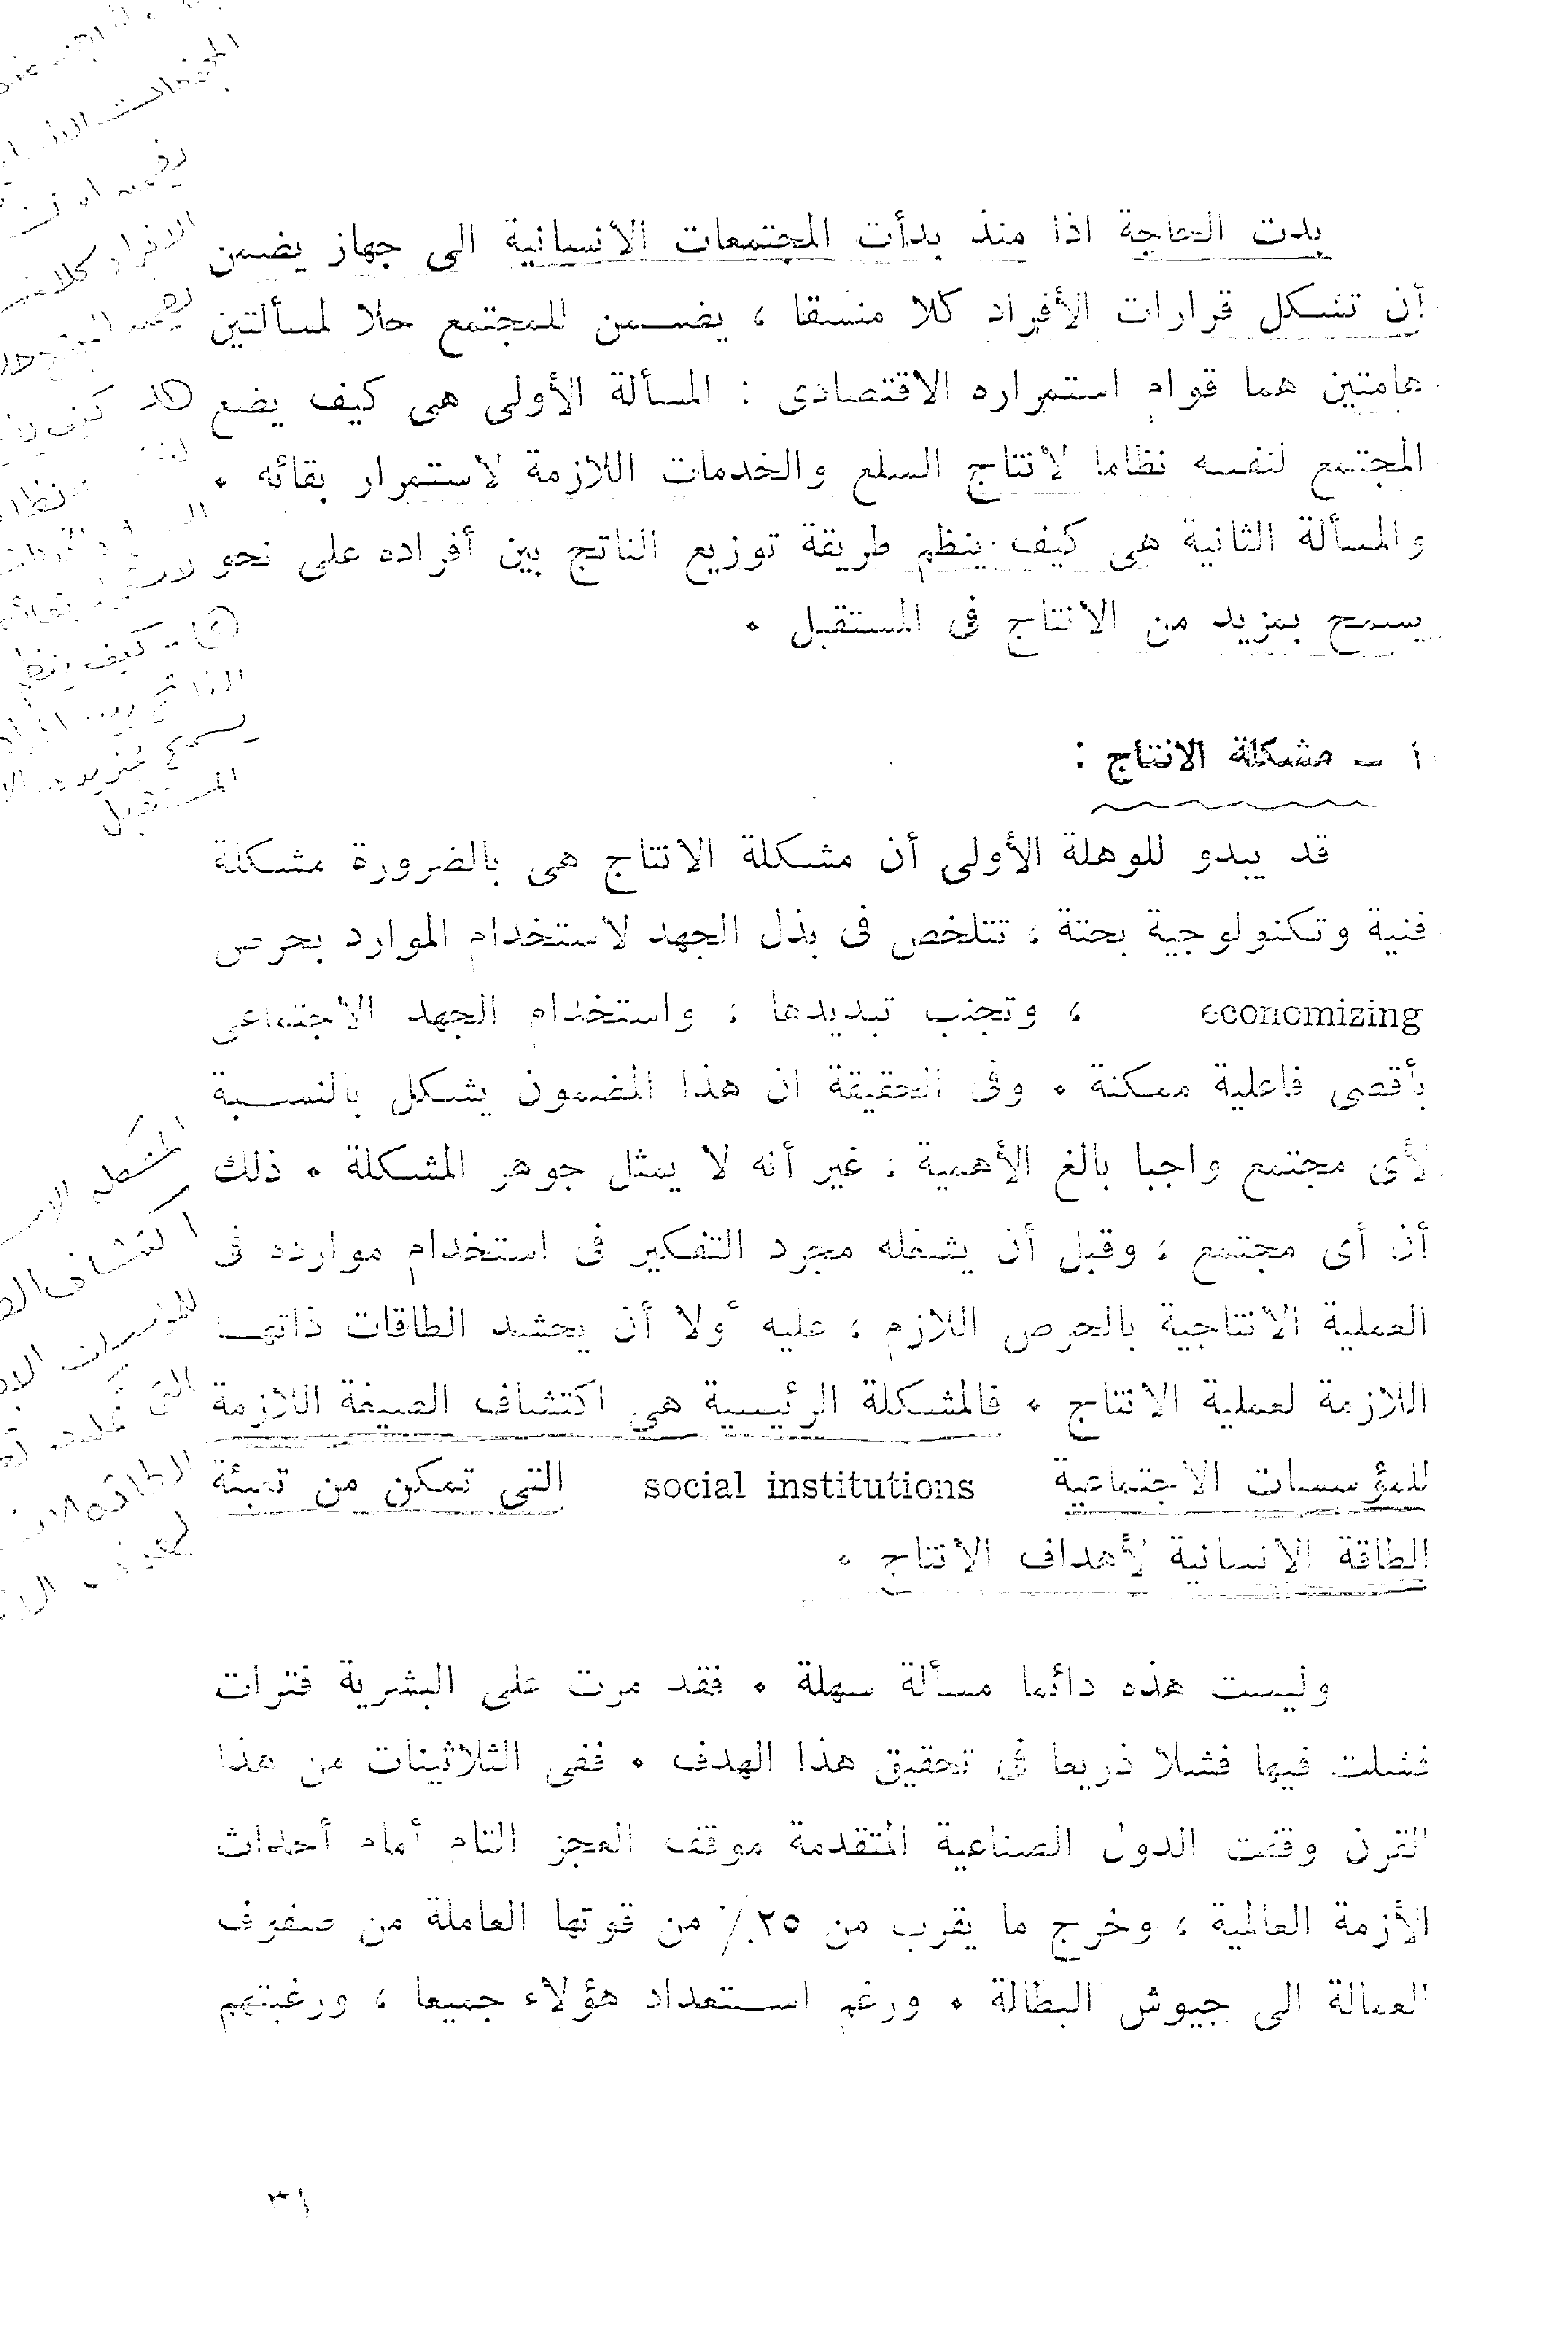 بدت الحاجة اذا منذ بدأت المجتمعات الانسانية الى جهاز يضمن
أن تشكل قرارات الأفراد كلا منسقا ، يضمن للمجتمع حلا لمسألتين
هامتين هما قوام استمراره الاقتصادى : المسألة الأولى هى كيف يضع
المجتمع لنفسه نظاما لانتاج السلع والخدمات اللازمة لاستمرار بقائه .
والمسألة الثانية هى كيف ينظم طريقة توزيع الناتج بين أفراده على نحو
يسمح بمزيد من الانتاج فى المستقبل .
١ – مشكلة الانتاج :
قد يبدو للوهلة الأولى أن مشكلة الانتاج هى بالضرورة مشكلة
فنية وتكنولوجية بحتة ؛ تتلخص فى بذل الجهد لاستخدام الموارد بحرص
economizing ، وتجنب تبديدها ؛ واستخدام الجهد الاجتماعى
بأقصى فاعلية ممكنة . وفى الحقيقة ان هذا المضمون يشكل بالنسبة
لأى مجتمع واجبا بالغ الأهمية ؛ غير أنه لا يمثل جوهر المشكلة . ذلك
أن أى مجتمع ؛ وقبل أن يشغله مجرد التفكير فى استخدام موارده فى
العملية الانتاجية بالحرص اللازم ؛ عليه أولا أن يحشد الطاقات ذاتها
اللازمة لعملية الانتاج . فالمشكلة الرئيسية هى اكتشاف الصيغة اللازمة
للمؤسسات الاجتماعية social institutions التى تمكن من تعبئة
الطاقة الانسانية لأهداف الانتاج .
وليست هذه دائما مسألة سهلة . فقد مرت على البشرية فترات
فشلت فيها فشلا ذريعا فى تحقيق هذا الهدف . ففى الثلاثينات من هذا
القرن وقفت الدول الصناعية المتقدمة موقف العجز التام أمام أحداث
الأزمة العالمية ؛ وخرج ما يقرب من ٢٥٪ من قوتها العاملة من صفوف
العمالة الى جيوش البطالة . ورغم استعداد هؤلاء جميعا ؛ ورغبتهم
٣١
كيف ينظم
المستقبل